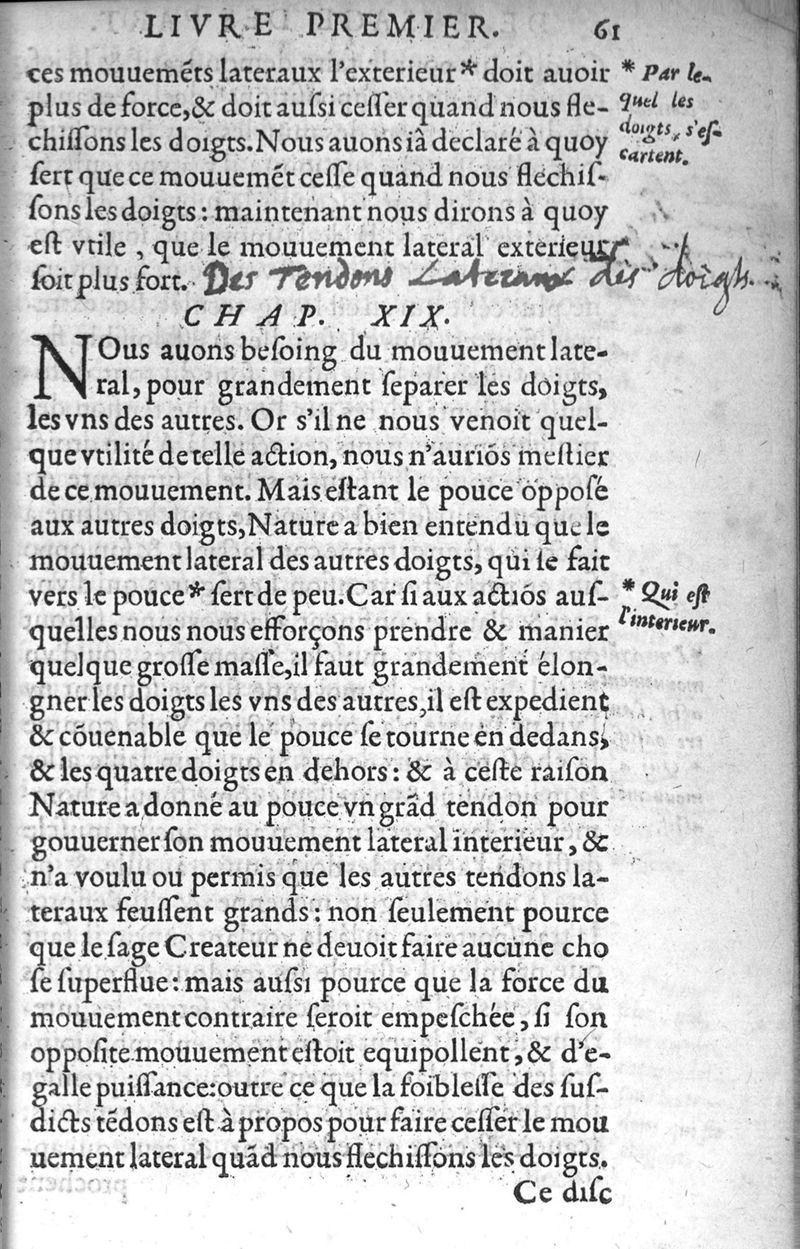 LIVRE PREMIER. 61
ces mouuemẽts lateraux l'exterieur* doit auoir
plus de force,& doit aussi cesser quand nous fle-
chissons les doigts. Nous auons ià declaré à quoy
sert que ce mouuemẽt cesse quand nous flechis-
sons les doigts: maintenant nous dirons à quoy
est vtile, que le mouuement lateral exterieur
soit plus fort. Des Tendons Lateraux des doigts.
* Par le-
quel les
doigts, s'es-
cartent.
CHAP. XIX.
NOus auons besoing du mouuement late-
ral, pour grandement separer les doigts,
les vns des autres. Or s'il ne nous venoit quel-
que vtilité de telle action, nous n'auriõs mestier
de ce mouuement. Mais estant le pouce opposé
aux autres doigts, Nature a bien entendu que le
mouuement lateral des autres doigts, qui se fait
vers le pouce* sert de peu. Car si aux actiõs aus-
quelles nous nous efforçons prendre & manier
quelque grosse masse, il faut grandement élon-
gner les doigts les vns des autres, il est expedient
& cõuenable que le pouce se tourne en dedans,
& les quatre doigts en dehors: & à ceste raison
Nature a donné au pouce vn grãd tendon pour
gouuerner son mouuement lateral interieur, &
n'a voulu ou permis que les autres tendons la-
teraux feussent grands: non seulement pource
que le sage Createur ne deuoit faire aucune cho
se superflue: mais aussi pource que la force du
mouuement contraire seroit empeschée, si son
opposite mouuement estoit equipollent, & d'e-
galle puissance: outre ce que la foiblesse des sus-
dicts tẽdons est à propos pour faire cesser le mou
uement lateral quãd nous flechissons les doigts.
* Qui est
l'interieur.
Ce disc